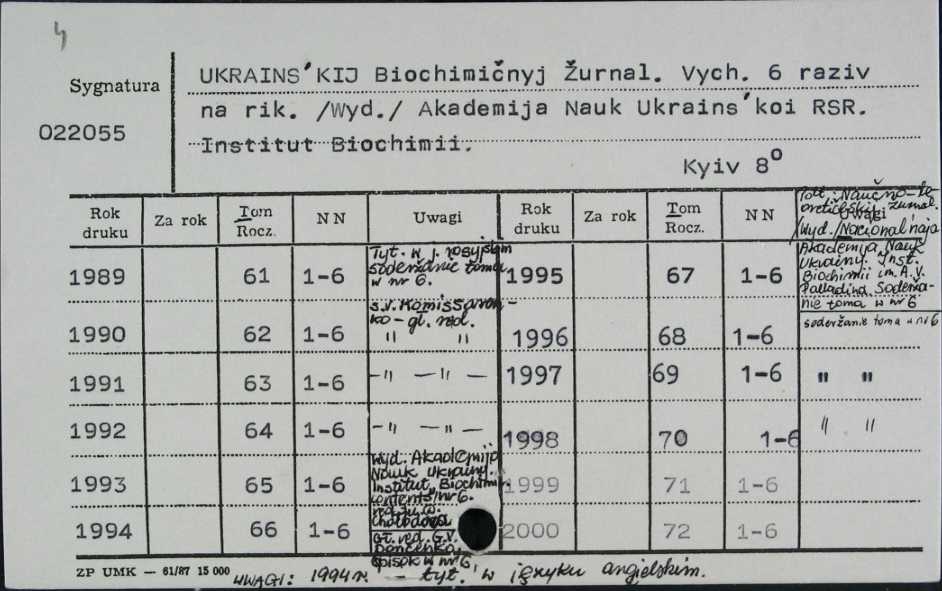 4
Sygnatura
022055
UKRAINS´KIJ Biochimičnyj Žurnal. Vych. 6 raziv
na rik. /Wyd./ Akademija Nauk Ukrains´koi RSR.
Institut Biochimii.
Kyiv 8°
Rok druku Za rok Tom Rocz. NN Uwagi Rok druku Za rok Tom Rocz. NN Uwagi
Wyd. Nacional'naja
Akademija Nauk
Ukrainy. Inst.
Biochimii im. A.V.
Palladina. Soderža-
nie toma w nr 6
1989 61 1-6 Tyt. w j. rosyjskim
soderžanie toma
w nr 6.
1995 67 1-6
1990 62 1-6 S.V. Komissaren-
ko - gl. red.
" "
1996 68 1-6 soderžanie toma w nr 6
1991 63 1-6 -"- -"-
1997 69 1-6 " "
1992 64 1-6 -"- -"-
1998 70 1-6 " "
1993 65 1-6 Wyd. Akademija
Nauk Ukrainy.
Institut Biochimii.
contents/nr 6.
1999 71 1-6
1994 66 1-6
Gł. red. G.V.
Dončenko.
spisok w nr 6.
2000 72 1-6
ZP UMK — 61/87 15 000
UWAGI: 1994 r. - tyt. w języku angielskim.